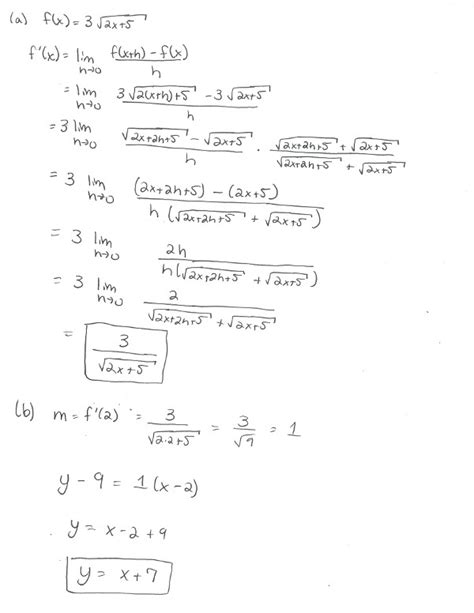 (a) f(x) = 3√(2x+5)
f'(x) = lim h→0 (f(x+h) - f(x))/h
= lim h→0 (3√(2(x+h)+5) - 3√(2x+5))/h
= 3 lim h→0 (√(2x+2h+5) - √(2x+5))/h · (√(2x+2h+5) + √(2x+5))/(√(2x+2h+5) + √(2x+5))
= 3 lim h→0 ((2x+2h+5) - (2x+5))/(h(√(2x+2h+5) + √(2x+5)))
= 3 lim h→0 2h/(h(√(2x+2h+5) + √(2x+5)))
= 3 lim h→0 2/(√(2x+2h+5) + √(2x+5))
= 3/√(2x+5)
(b) m = f'(2) = 3/√(2·2+5) = 3/√9 = 1
y - 9 = 1(x-2)
y = x-2+9
y = x+7